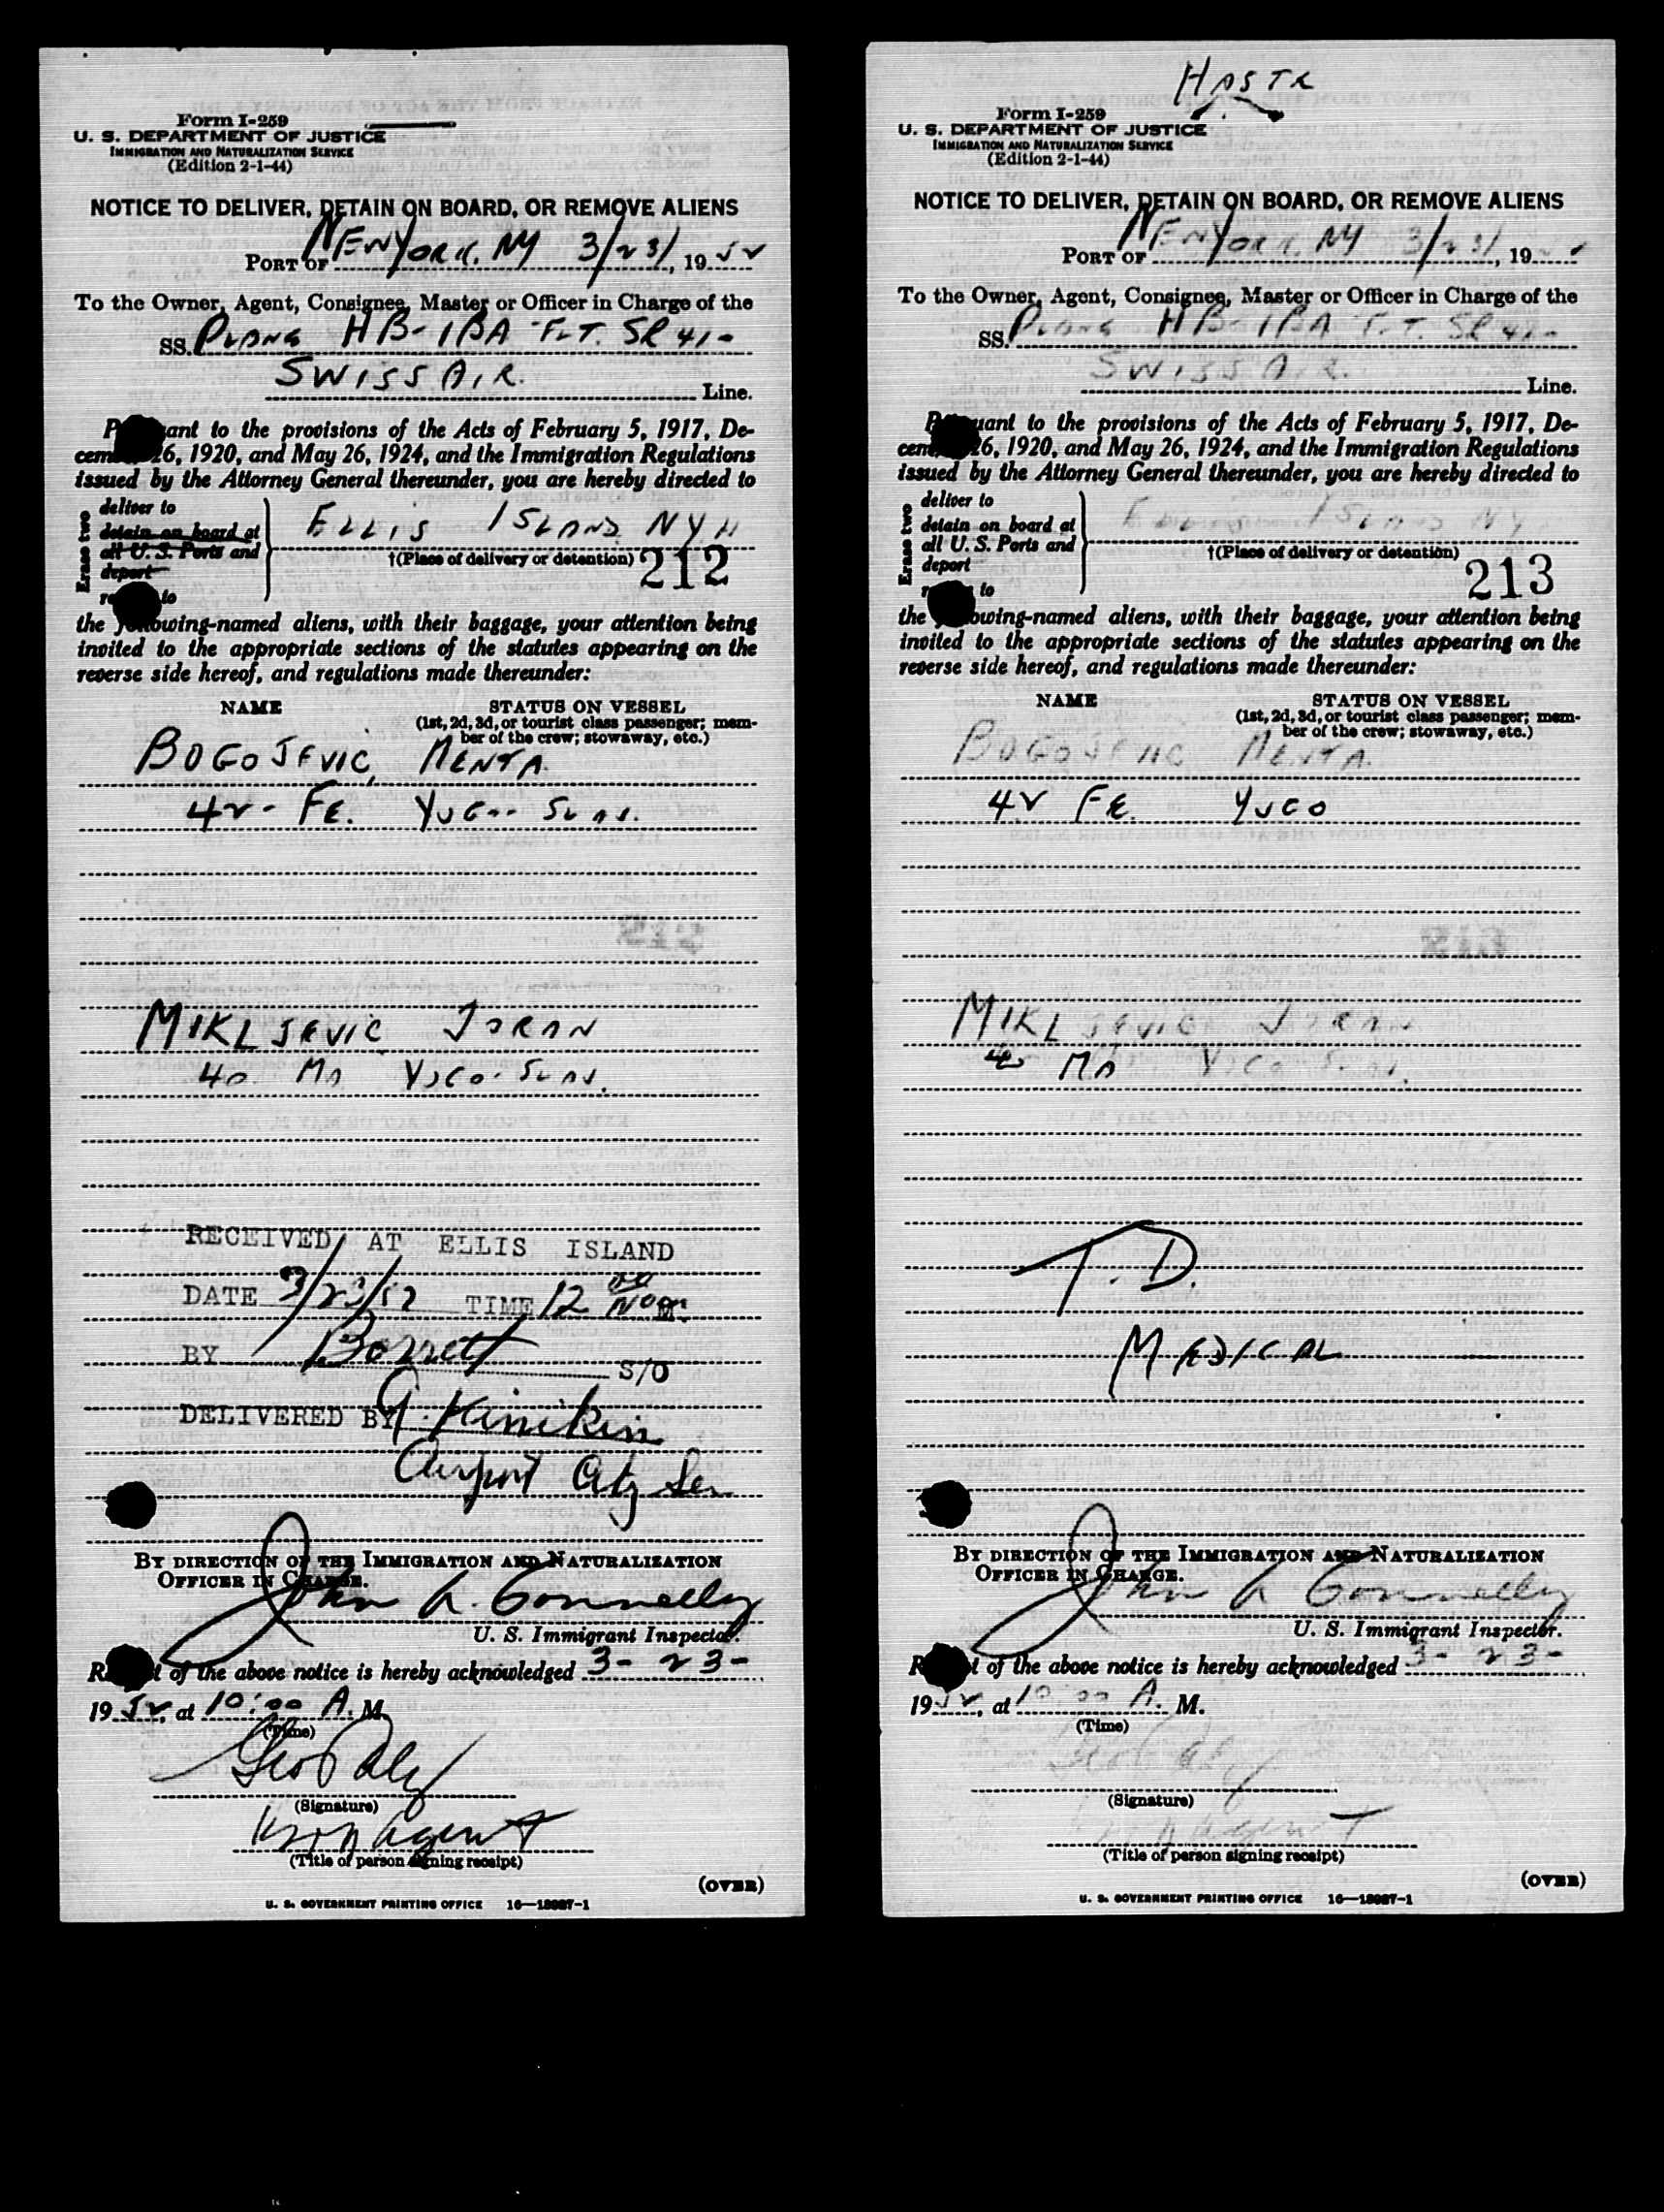 Form I-259
U. S. DEPARTMENT OF JUSTICE
IMMIGRATION AND NATURALIZATION SERVICE
(Edition 2-1-44)
NOTICE TO DELIVER, DETAIN ON BOARD, OR REMOVE ALIENS
PORT OF NEW YORK, NY 3/23/, 1952
To the Owner, Agent, Consignee, Master or Officer in Charge of the
SS. PLANE HB-IBA FLT. SR 41-
SWISSAIR. Line.
P uant to the provisions of the Acts of February 5, 1917, De-
cem 26, 1920, and May 26, 1924, and the Immigration Regulations
issued by the Attorney General thereunder, you are hereby directed to
Erase two
deliver to
detain on board at
all U. S. Ports and
deport
r to
ELLIS ISLAND NYH
†(Place of delivery or detention) 212
the following-named aliens, with their baggage, your attention being
invited to the appropriate sections of the statutes appearing on the
reverse side hereof, and regulations made thereunder:
NAME STATUS ON VESSEL
(1st, 2d, 3d, or tourist class passenger; mem-
ber of the crew; stowaway, etc.)
BOGOJEVIC, MENTA
42 - FE. YUGO- SLAV.
MIKLJEVIC JORAN
40 MA YUGO-SLAV.
RECEIVED AT ELLIS ISLAND
DATE 3/23/52 TIME 12 00 NOON M.
BY Borrett S/O
DELIVERED BY
Airport
BY DIRECTION OF THE IMMIGRATION AND NATURALIZATION
OFFICER IN CHARGE.
John L. Connelly
U. S. Immigrant Inspector.
R t of the above notice is hereby acknowledged 3- 23-
1952, at 10:00 A. M.
(Time)
(Signature)
agent
(Title of person signing receipt)
(OVER)
U. S. GOVERNMENT PRINTING OFFICE 16—18987-1
Form I-259
U. S. DEPARTMENT OF JUSTICE
IMMIGRATION AND NATURALIZATION SERVICE
(Edition 2-1-44)
NOTICE TO DELIVER, DETAIN ON BOARD, OR REMOVE ALIENS
PORT OF NEW YORK, NY 3/23/, 19
To the Owner, Agent, Consignee, Master or Officer in Charge of the
SS. PLANE HB-IBA FLT. SR 41-
SWISSAIR. Line.
P uant to the provisions of the Acts of February 5, 1917, De-
cem 26, 1920, and May 26, 1924, and the Immigration Regulations
issued by the Attorney General thereunder, you are hereby directed to
Erase two
deliver to
detain on board at
all U. S. Ports and
deport
r to
ELLIS ISLAND NY
†(Place of delivery or detention) 213
the following-named aliens, with their baggage, your attention being
invited to the appropriate sections of the statutes appearing on the
reverse side hereof, and regulations made thereunder:
NAME STATUS ON VESSEL
(1st, 2d, 3d, or tourist class passenger; mem-
ber of the crew; stowaway, etc.)
BOGOJEVIC MENTA.
42 FE. YUGO
MIKLJEVIC JORAN
40 MA YUGO-SLAV.
T. D.
MEDICAL
BY DIRECTION OF THE IMMIGRATION AND NATURALIZATION
OFFICER IN CHARGE.
John L Connelly
U. S. Immigrant Inspector.
R t of the above notice is hereby acknowledged 3- 23-
1952, at 10:00 A. M.
(Time)
(Signature)
agent
(Title of person signing receipt)
(OVER)
U. S. GOVERNMENT PRINTING OFFICE 16—18987-1